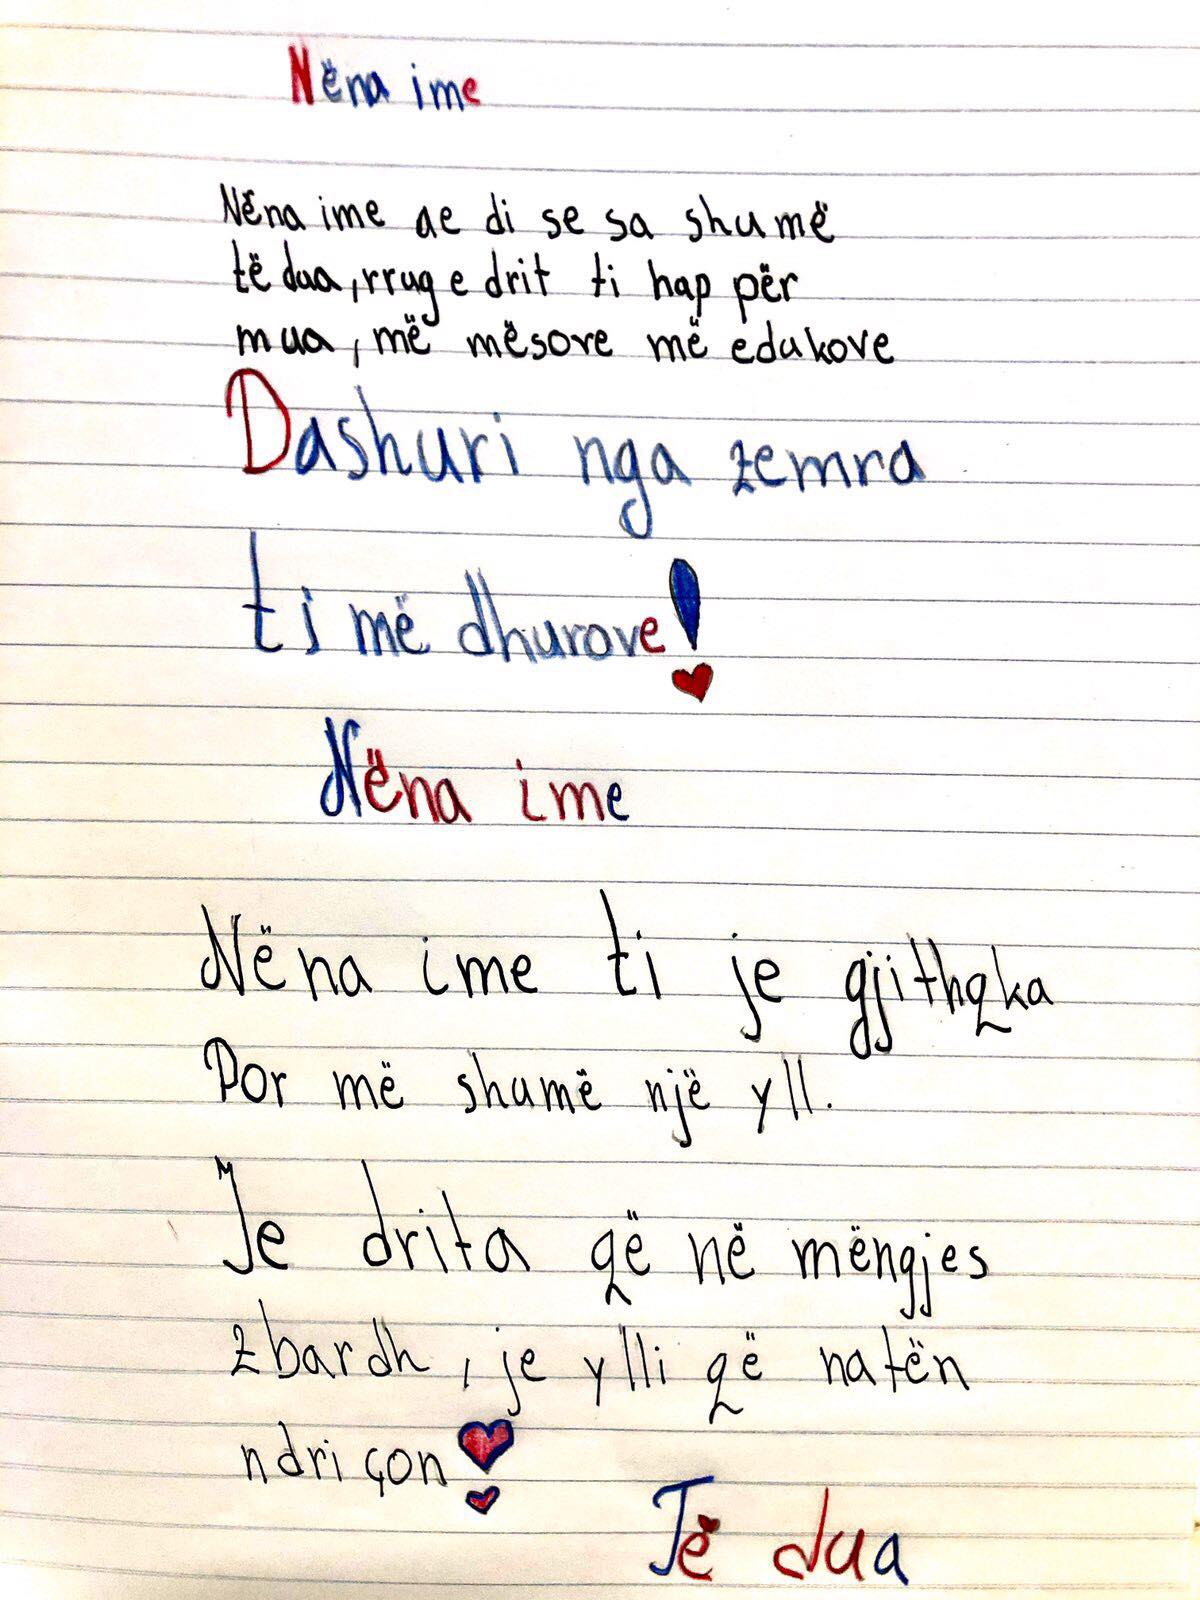 Nëna ime
Nëna ime ae di se sa shumë
të dua, rrug e drit ti hap për
mua, më mësore më edukove
Dashuri nga zemra
ti më dhurove!
Nëna ime
Nëna ime ti je gjithqka
Por më shumë një yll.
Je drita që në mëngjes
zbardh, je ylli që natën
ndriçon
Të dua